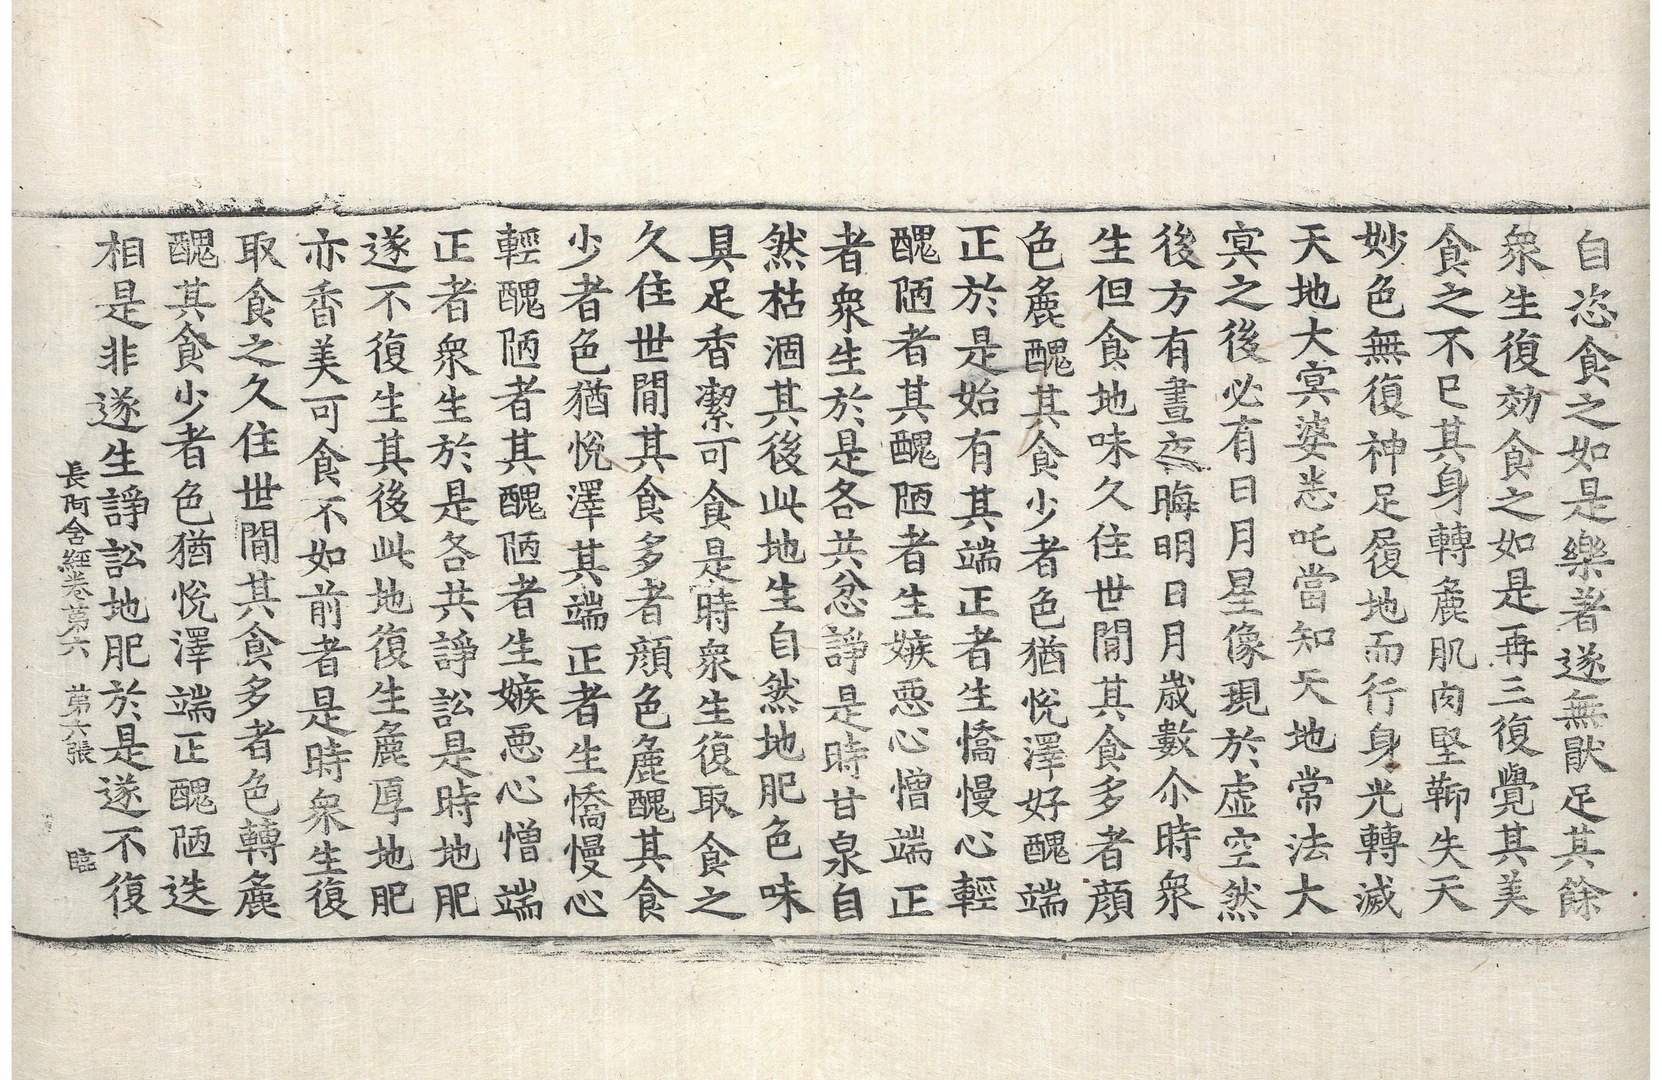 自恣食之如是樂著遂無猒足其餘
衆生復効食之如是再三復覺其美
食之不已其身轉麁肌肉堅䩕失天
妙色無復神足履地而行身光轉滅
天地大冥婆悉吒當知天地常法大
冥之後必有日月星像現於虛空然
後方有晝夜晦明日月歲數尒時衆
生但食地味久住世間其食多者顔
色麁醜其食少者色猶悅澤好醜端
正於是始有其端正者生憍慢心輕
醜陋者其醜陋者生嫉惡心憎端正
者衆生於是各共忿諍是時甘泉自
然枯涸其後此地生自然地肥色味
具足香潔可食是時衆生復取食之
久住世間其食多者顔色麁醜其食
少者色猶悅澤其端正者生憍慢心
輕醜陋者其醜陋者生嫉惡心憎端
正者衆生於是各共諍訟是時地肥
遂不復生其後此地復生麁厚地肥
亦香美可食不如前者是時衆生復
取食之久住世間其食多者色轉麁
醜其食少者色猶悅澤端正醜陋迭
相是非遂生諍訟地肥於是遂不復
長阿含經卷第六 第六張 臨